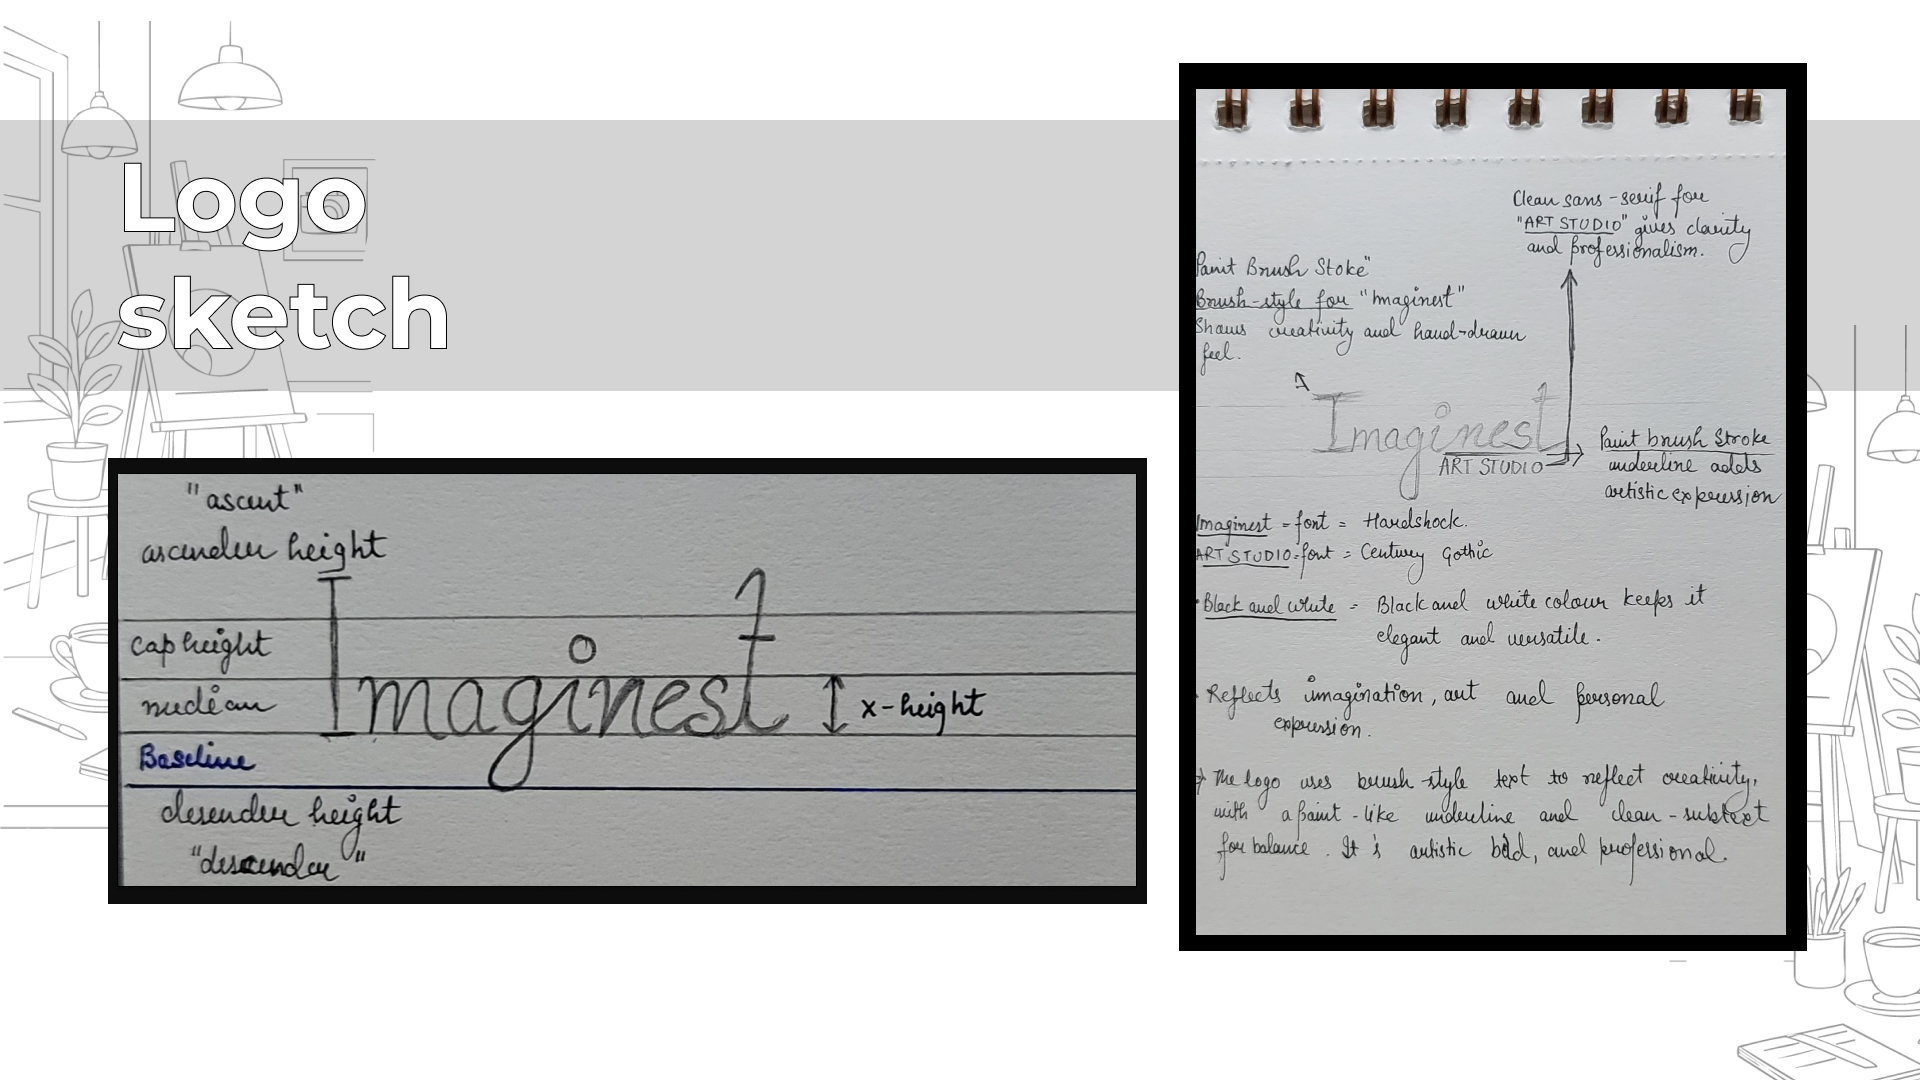 Logo
sketch
"ascent"
ascender height
cap height
median
Baseline
desender height
"descender"
Imaginest
x-height
Clean sans-serif for
"ART STUDIO" gives clarity
and professionalism.
Paint Brush Stoke"
Brush-style for "Imaginest"
Shows creativity and hand-drawn
feel.
Imaginest
ART STUDIO
Paint brush Stroke
underline adds
artistic expression
Imaginest = font = Hardshock.
ART STUDIO = font = Century Gothic
Black and white = Black and white colour keeps it
elegant and versatile.
Reflects imagination, art and personal
expression.
The logo uses brush-style text to reflect creativity,
with a paint-like underline and clean-subtext
for balance. It's artistic bold, and professional.